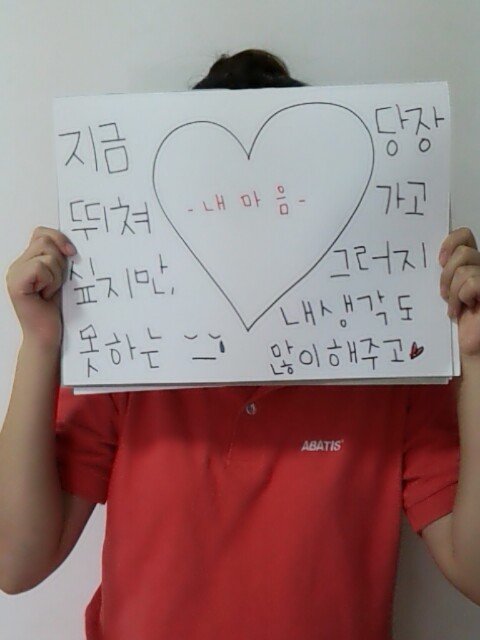 지금 당장
뛰쳐 가고
싶지만, 그러지
못하는
- 내 마음 -
내 생각도
많이 해주고
ABATIS